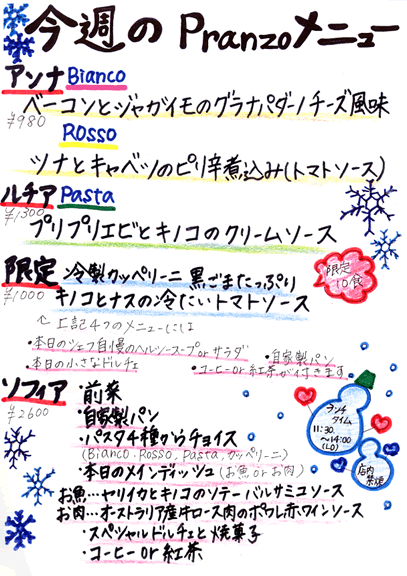 今週のPranzoメニュー
アンナ Bianco
¥980
ベーコンとジャガイモのグラナパダーノチーズ風味
Rosso
ツナとキャベツのピリ辛煮込み(トマトソース)
ルチア Pasta
¥1300
プリプリエビとキノコのクリームソース
限定 冷製カッペリーニ 黒ごまたっぷり
¥1000
キノコとナスの冷たいトマトソース
限定
10食
↑上記4つのメニューには
・本日のシェフ自慢のヘルシースープorサラダ ・自家製パン
・本日の小さなドルチェ ・コーヒーor紅茶が付きます
ソフィア
¥2600
・前菜
・自家製パン
・パスタ4種からチョイス
(Bianco.Rosso.Pasta.カッペリーニ)
・本日のメインディッシュ(お魚orお肉)
お魚…ヤリイカとキノコのソテーバルサミコソース
お肉…オーストラリア産牛ロース肉のポワレ赤ワインソース
・スペシャルドルチェと焼菓子
・コーヒーor紅茶
ランチ
タイム
11:30
~14:00
(LO)
店内
禁煙